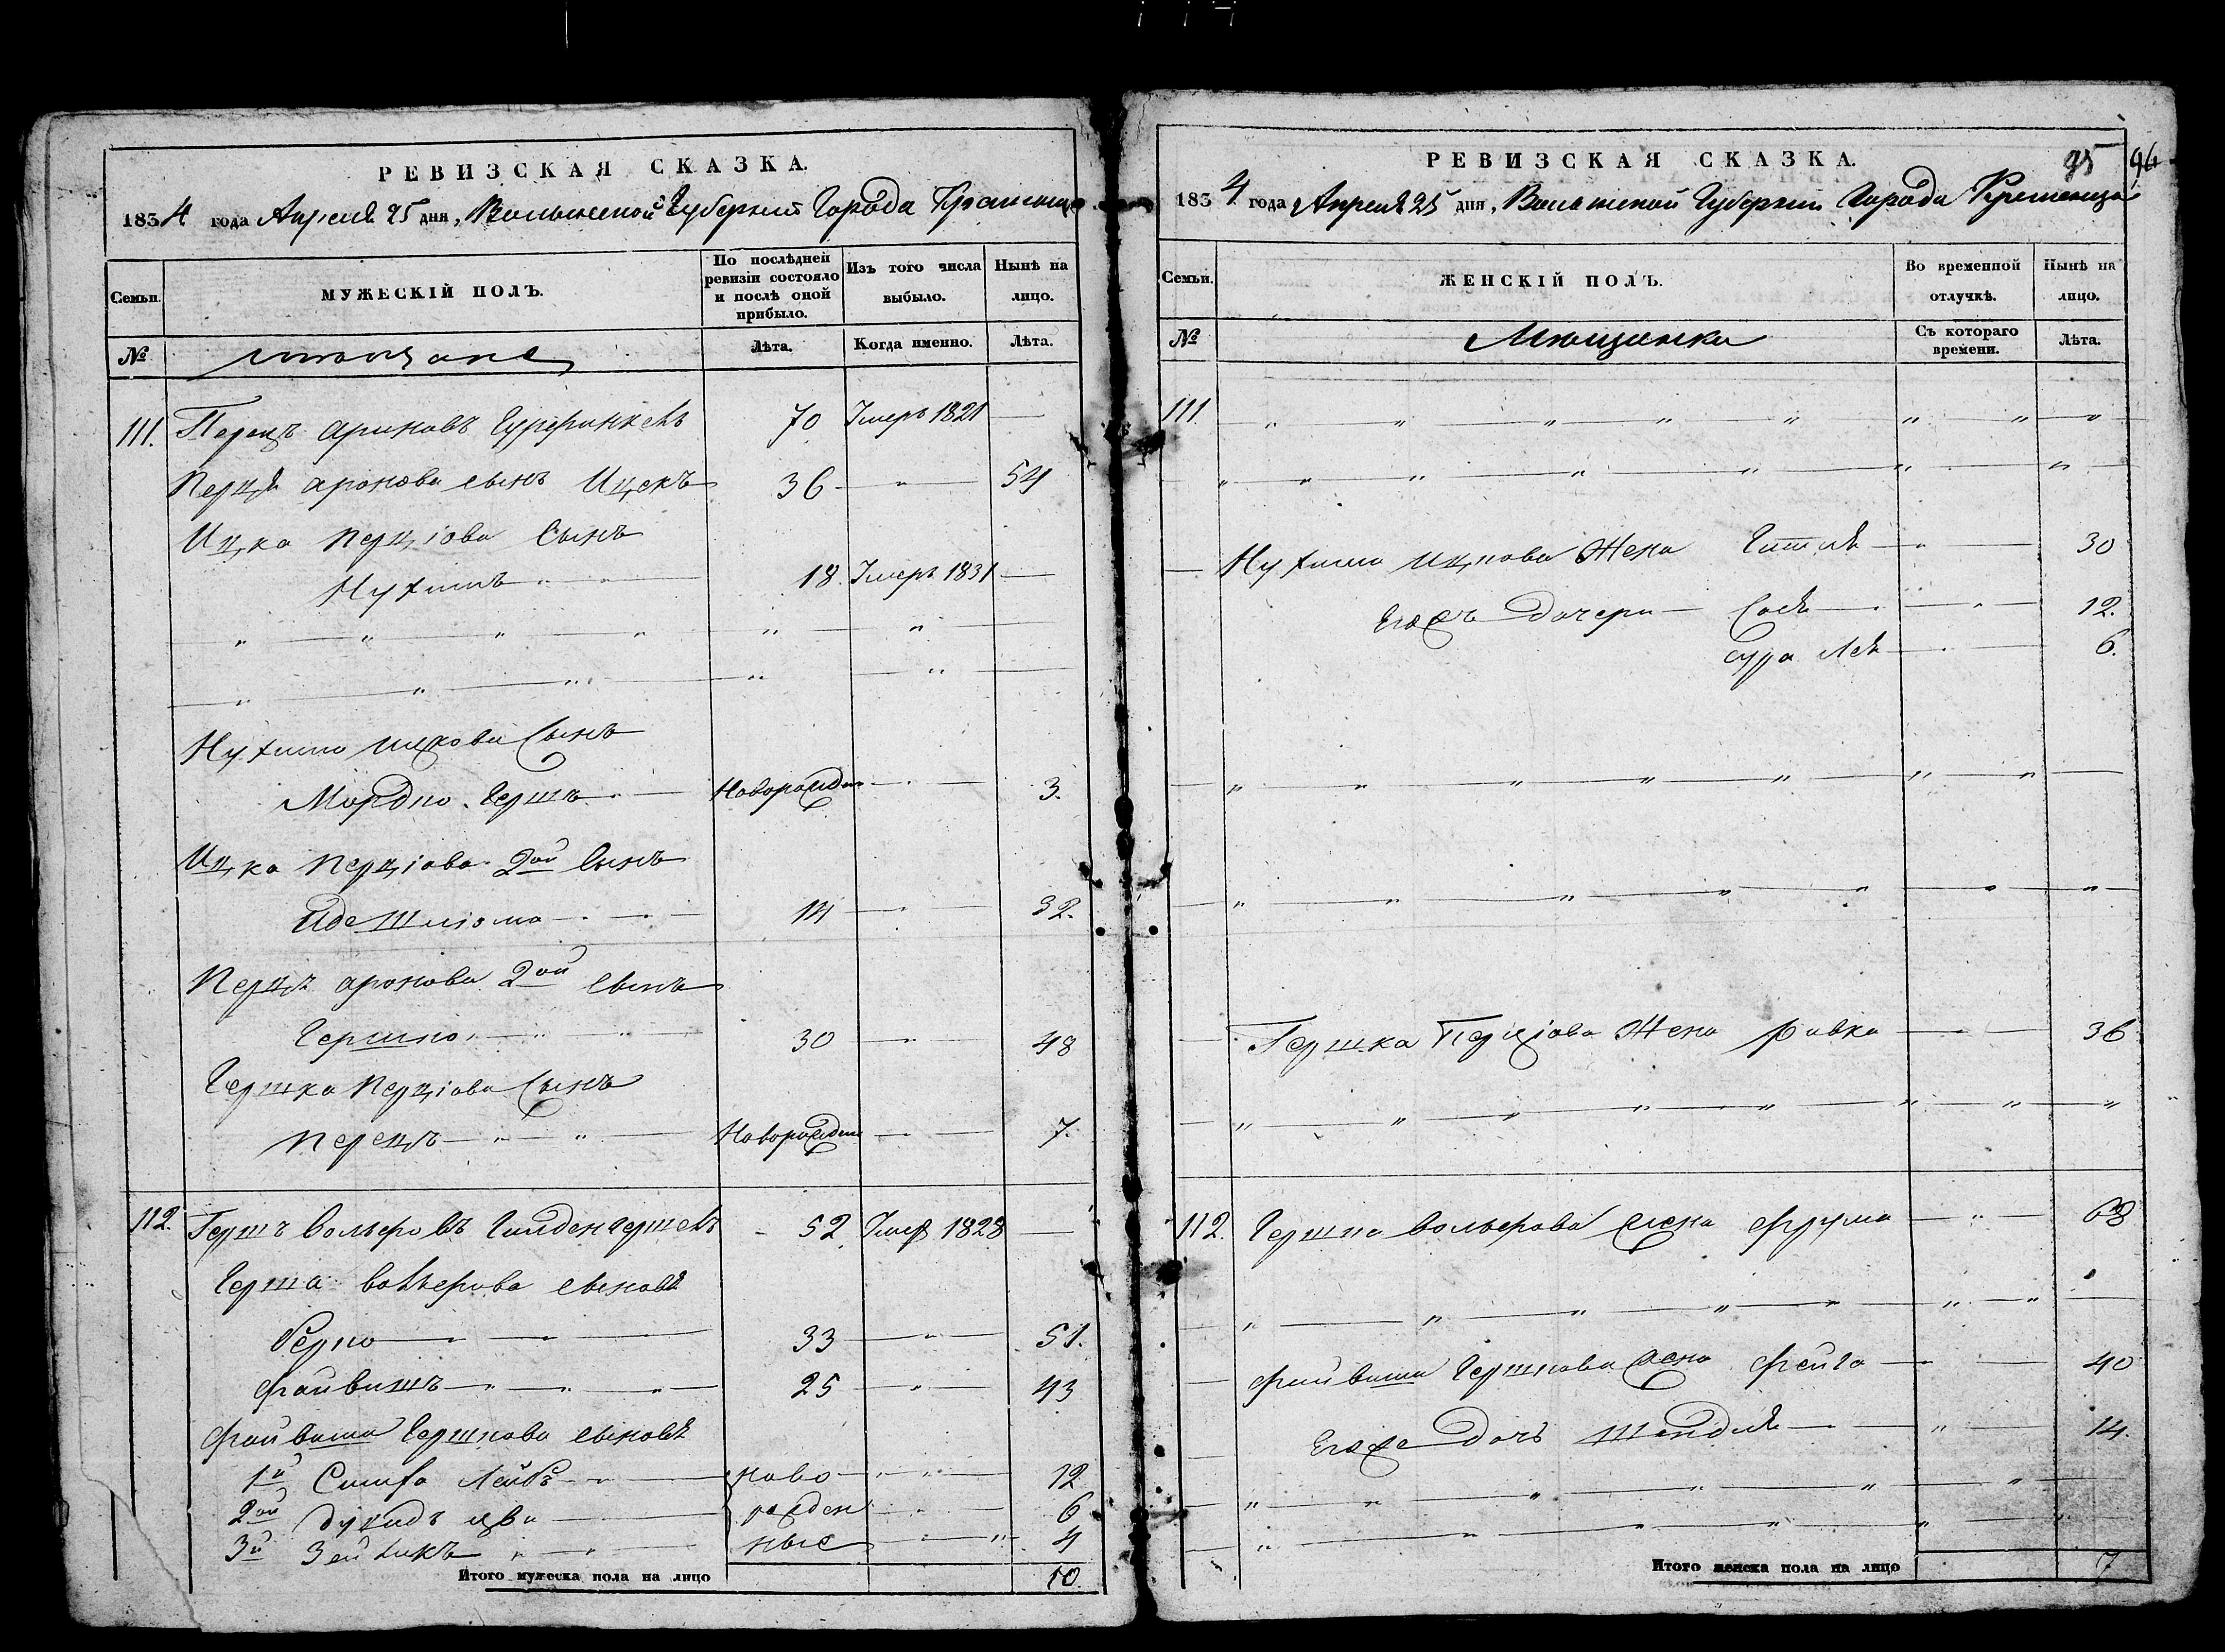 РЕВИЗСКАЯ СКАЗКА.
1834 года Апреля 25 дня, Волынской Губернии Города Кременца
Семьи.
МУЖЕСКІЙ ПОЛЪ.
По послѣдней ревизіи состояло и послѣ оной прибыло.
Изъ того числа выбыло.
Нынѣ на лицо.
№
мещане
Лѣта.
Когда именно.
Лѣта.
111. Перецъ Ароновъ 70 Умеръ 1821 —
Перця Аронова сынъ Ицекъ 36 — " — 54
Ицка Перціова Сынъ
Нухимъ 18. Умеръ 1831 —
" — " — " — " " — " —
" — " — " — " — " —
Нухима Ицкова Сынъ
Мордко Гершъ — Новорожден — 3.
Ицка Перціова 2ой Сынъ
Иде Шліома — 14 — 32.
Перця Аронова 2ой сынъ
Гершко — 30 — 48
Гершка Перціова Сынъ
Перецъ — " — " — Новорожден — 7.
112. Гершъ Вольфовъ 52 Умер 1828 —
Герша Вольфова сыновя
Берко — 33 — " — 51.
Файвишъ — 25 — " — 43
Файвиша Гершкова сыновя
1й Симха Лейбъ — ново — 12
2ой цви — рожден — 6
3й Зейликъ — ные — 4
Итого мужеска пола на лицо 10.
РЕВИЗСКАЯ СКАЗКА.
95 96
1834 года Апреля 25 дня, Волынской Губернии Города Кременца
Семьи.
ЖЕНСКІЙ ПОЛЪ.
Во временной отлучкѣ.
Нынѣ на лицо.
№
Мещанки
Съ котораго времени.
Лѣта.
111. " " " " " " — " — " —
" " " " " — " — " —
— Нухима Ицкова Жена Гитля — " — 30
Егожъ Дочери — Сося — " — 12.
Сура Лея — " — 6.
— " — " — " — " — " — " — " —
— " — " — " — " — " — " — " —
— Гершка Перціова Жена Ривка — " — 36
— " — " — " — " — " — " — " — "
112. Гершка Вольфова жена Фрума — " — 68
— " — " — " — " — " — " — " —
— Файвиша Гершкова жена Фейга — " — 40
Егоже Дочь Шендля — " — 14.
— " — " — " — " — " — " —
— " — " — " — " — " — " —
Итого женска пола на лицо 7